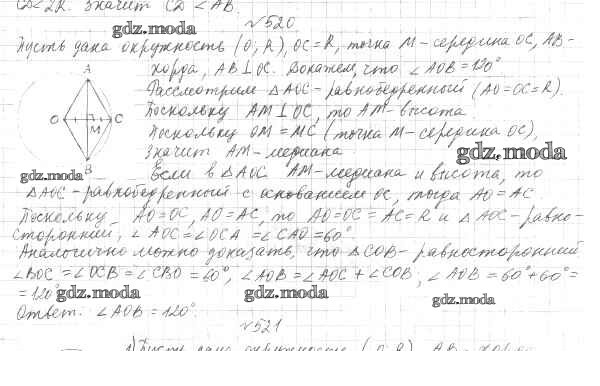 CD < 2R. Значит CD < AB.
№520
gdz.moda
Пусть дана окружность (O, R), OC = R, точка M - середина OC, AB -
хорда, AB ⊥ OC. Докажем, что ∠AOB = 120°
Рассмотрим △AOC - равнобедренный (AO = OC = R).
Поскольку AM ⊥ OC, то AM - высота.
Поскольку OM = MC (точка M - середина OC),
значит AM - медиана.
gdz.moda
Если в △AOC AM - медиана и высота, то
gdz.moda
△AOC - равнобедренный с основанием OC, тогда AO = AC
Поскольку AO = OC, AO = AC, то AO = OC = AC = R и △AOC - равно-
сторонний, ∠AOC = ∠OCA = ∠CAO = 60°.
Аналогично можно доказать, что △COB - равносторонний,
∠BOC = ∠OCB = ∠CBO = 60°, ∠AOB = ∠AOC + ∠COB, ∠AOB = 60° + 60° =
= 120°
gdz.moda
gdz.moda
gdz.moda
Ответ: ∠AOB = 120°.
№521
A
O
M
C
B